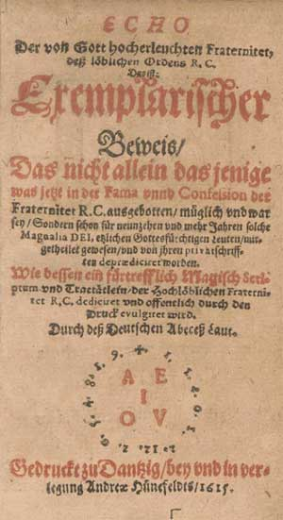 ECHO
Der von Gott hocherleuchten Fraternitet,
deß löblichen Ordens R. C.
Das ist:
Exemplarischer
Beweis/
Das nicht allein das jenige
was jetzt in der Fama unnd Confession der
Fraternitet R.C. ausgebotten/ müglich und war
sey/ Sondern schon für neunzehen und mehr Jahren solche
Magnalia DEI, etzlichen Gottesfürchtigen Leuten/ mit-
getheilet gewesen/ und von ihren privatschriff-
ten depraedicieret worden.
Wie dessen ein fürtrefflich Magisch Scri-
ptum und Tractätlein/ der Hochlöblichen Fraterni-
tet R.C. dediciret und offentlich durch den
Druck evulgiret wird.
Durch deß Deutschen Abeceß Laut.
A E
I
O V
Gedruckt zu Dantzig/ bey und in ver-
legung Andreæ Hünefeldts/ 1615.